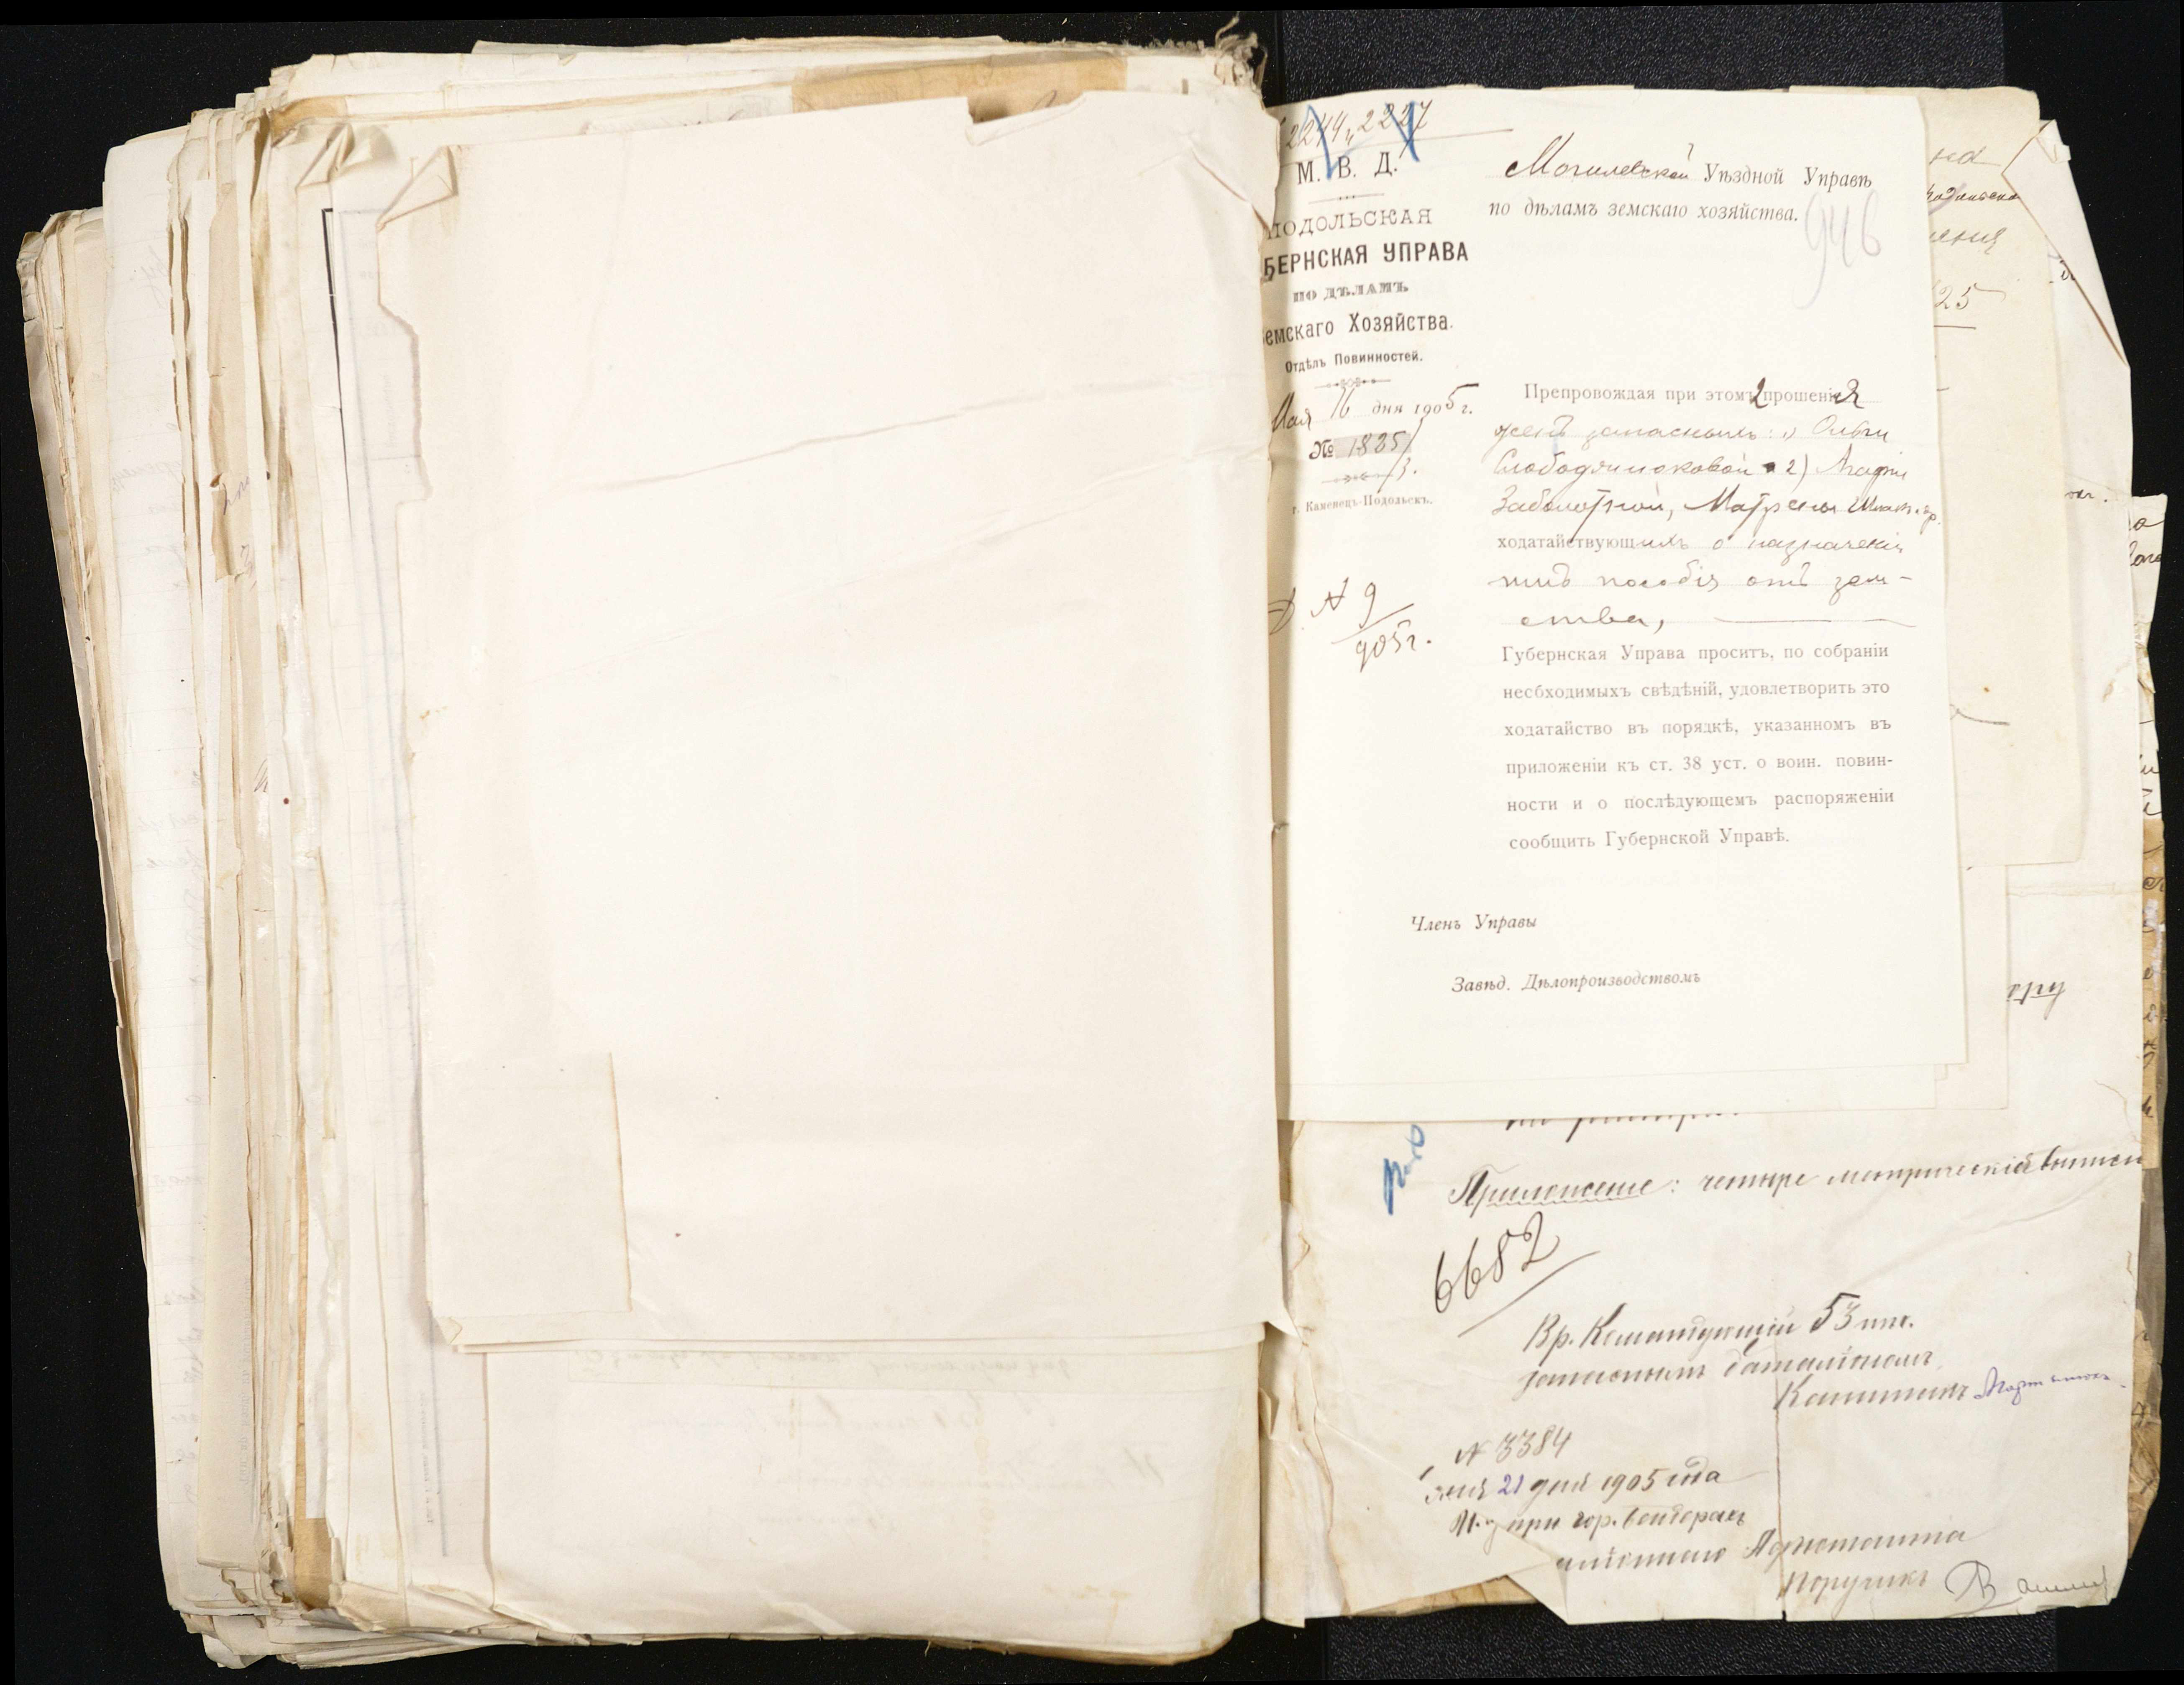 2244, 2227
М. В. Д.
ПОДОЛЬСКАЯ
БЕРНСКАЯ УПРАВА
ПО ДѢЛАМЪ
емскаго Хозяйства.
Отдѣлъ Повинностей.
Мая 16 дня 1905 г.
№ 1835/
3.
г. Каменецъ-Подольскъ.
Д. № 9
905 г.
Могилевской Уѣздной Управѣ
по дѣламъ земскаго хозяйства.
946
Препровождая при этомъ 2 прошенія
женъ запасныхъ: 1) Ольги
Слободянюковой 2) Марiи
Заболотной, Матрены
ходатайствующихъ о назначеніи
имъ пособія отъ зем-
ства,
Губернская Управа проситъ, по собраніи
несбходимыхъ свѣдѣній, удовлетворить это
ходатайство въ порядкѣ, указанномъ въ
приложеніи къ ст. 38 уст. о воин. повин-
ности и о послѣдующемъ распоряженіи
сообщить Губернской Управѣ.
Членъ Управы
Завѣд. Дѣлопроизводствомъ
25
ору
Приложеніе: четыре метрическія выписи
6682
Вр. Командующій 53 пѣх.
запаснымъ баталіономъ,
Капитанъ Мартынюкъ
№ 3384
21 дня 1905 года
при гор. Бендерахъ
аліоннаго Адъютанта
Поручикъ